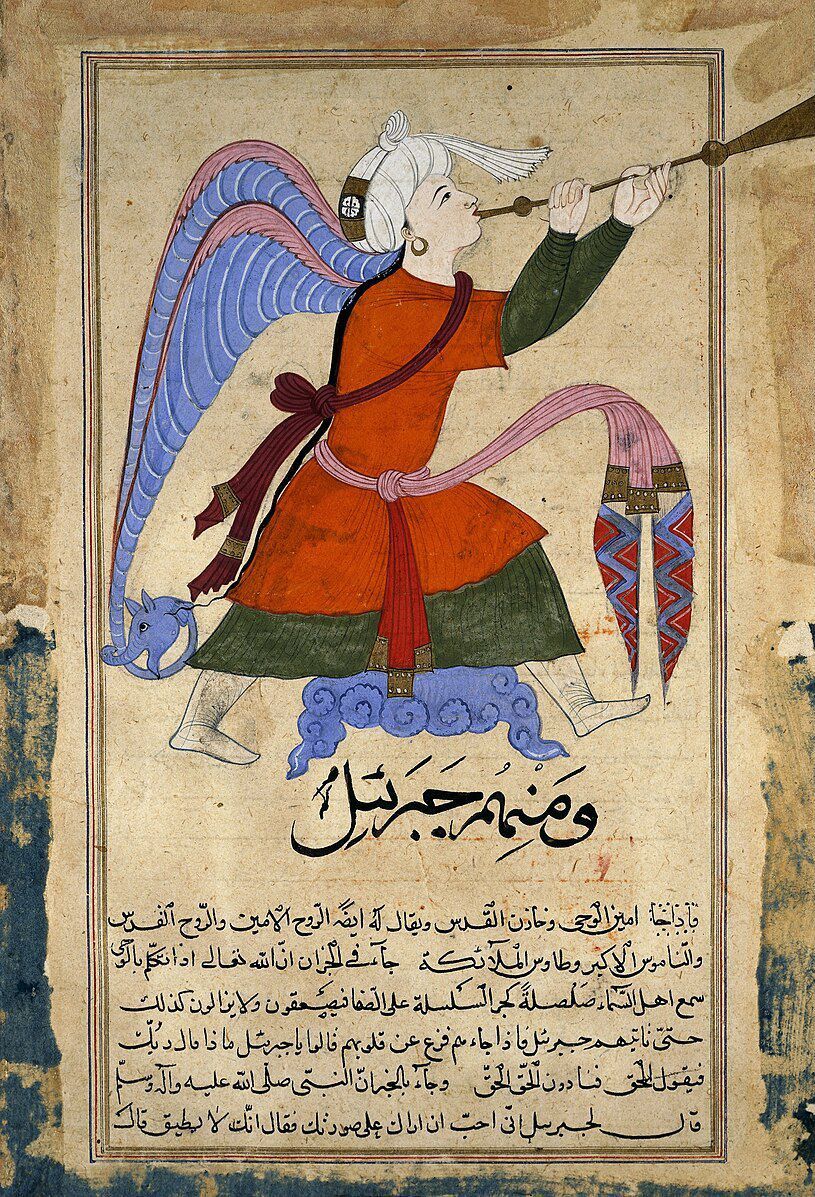 ومنهم جبرئيل
امين الوحي وخازن القدس ويقال له ايضًا الروح الامين والروح القدس
والناموس الاكبر وطاوس الملائكة جاء في الخبران الله تعالى اذا تكلم بالوحي
سمع اهل السماء صلصلةً كجر السلسلة على الصفا فيصعقون ولا يزالون كذلك
حتى ياتيهم جبرئيل فاذا جاءهم فزع عن قلوبهم قالوا يا جبرئيل ماذا قال ربك
فيقول الحق فينادون الحق الحق وجاء بالخبران النبي صلى الله عليه وآله وسلم
قال لجبرئيل اني احب ان اراك على صورتك فقال انك لا تطيق قال